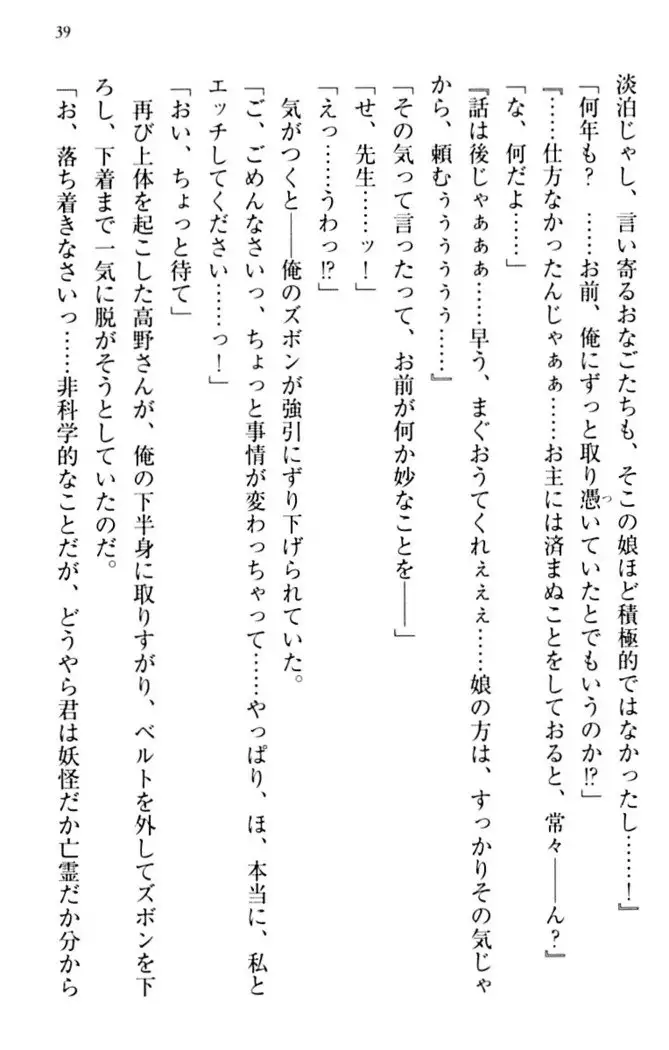 39
淡泊じゃし、言い寄るおなごたちも、そこの娘ほど積極的ではなかったし……！』
「何年も？　……お前、俺にずっと取り憑いていたとでもいうのか!?」
『……仕方なかったんじゃぁぁ……お主には済まぬことをしておると、常々――ん？』
「な、何だよ……」
『話は後じゃぁぁぁ……早う、まぐおうてくれぇぇぇ……娘の方は、すっかりその気じゃ
から、頼むぅぅぅぅぅ……』
「その気って言ったって、お前が何か妙なことを――」
「せ、先生……ッ！」
「えっ……うわっ!?」
気がつくと――俺のズボンが強引にずり下げられていた。
「ご、ごめんなさいっ、ちょっと事情が変わっちゃって……やっぱり、ほ、本当に、私と
エッチしてください……っ！」
「おい、ちょっと待て」
再び上体を起こした高野さんが、俺の下半身に取りすがり、ベルトを外してズボンを下
ろし、下着まで一気に脱がそうとしていたのだ。
「お、落ち着きなさいっ……非科学的なことだが、どうやら君は妖怪だか亡霊だか分から